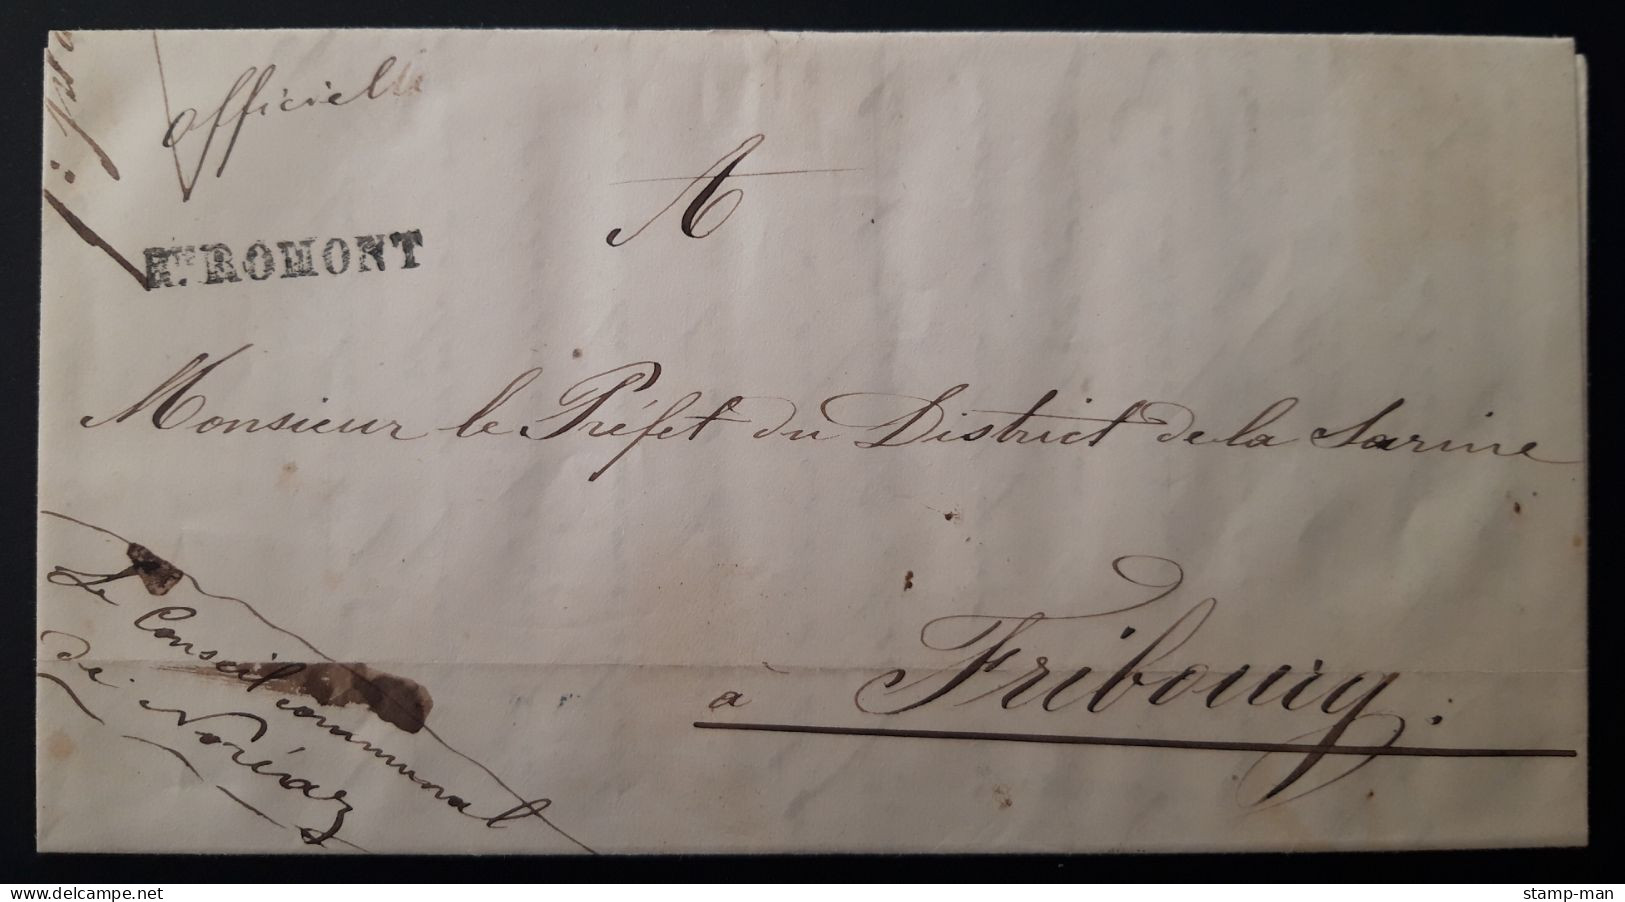 officielle
Rt. ROMONT
A
Monsieur le Préfet du District de la Sarine
à Fribourg.
Le Conseil communal
de Noréaz
stamp-man